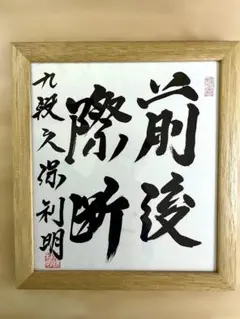 前後
際断
九段久保利明